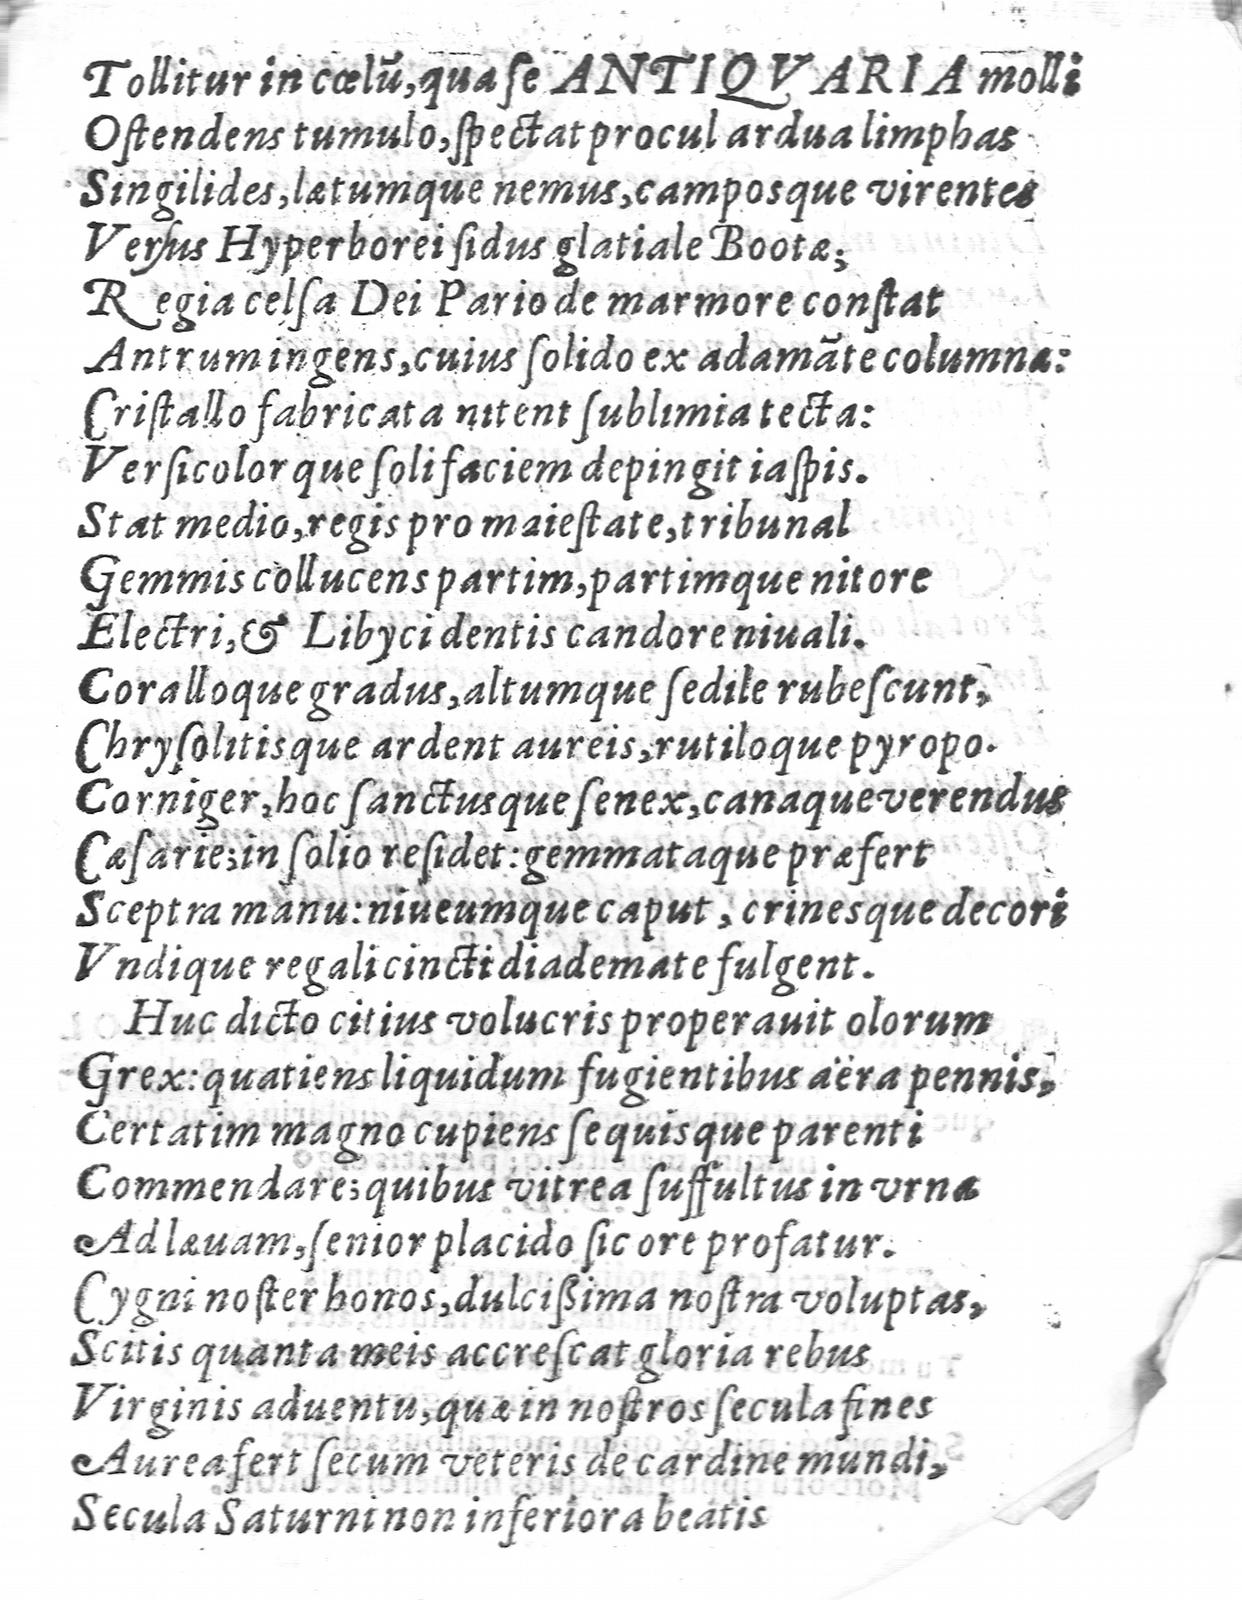 Tollitur in cœlũ, qua ſe ANTIQVARIA molli
Oſtendens tumulo, ſpectat procul ardua limphas
Singilides, lætumque nemus, camposque virentes
Verſus Hyperborei ſidus glatiale Bootæ;
Regia celſa Dei Pario de marmore conſtat
Antrum ingens, cuius ſolido ex adamãte columna:
Criſtallo fabricata nitent ſublimia tecta:
Verſicolorque ſoli faciem depingit iaſpis.
Stat medio, regis pro maieſtate, tribunal
Gemmis collucens partim, partimque nitore
Electri, & Libyci dentis candore niuali.
Coralloque gradus, altumque ſedile rubeſcunt,
Chryſolitisque ardent aureis, rutiloque pyropo.
Corniger, hoc ſanctusque ſenex, canaque verendus
Cæſarie; in ſolio reſidet: gemmataque præfert
Sceptra manu: niueumque caput, crinesque decori
Vndique regali cincti diademate fulgent.
Huc dicto citius volucris properauit olorum
Grex: quatiens liquidum fugientibus aëra pennis,
Certatim magno cupiens ſe quisque parenti
Commendare; quibus vitrea ſuffultus in vrna
Ad læuam, ſenior placido ſic ore profatur.
Cygni noſter honos, dulciſsima noſtra voluptas,
Scitis quanta meis accreſcat gloria rebus
Virginis aduentu, quæ in noſtros ſecula fines
Aurea fert ſecum veteris de cardine mundi,
Secula Saturni non inferiora beatis